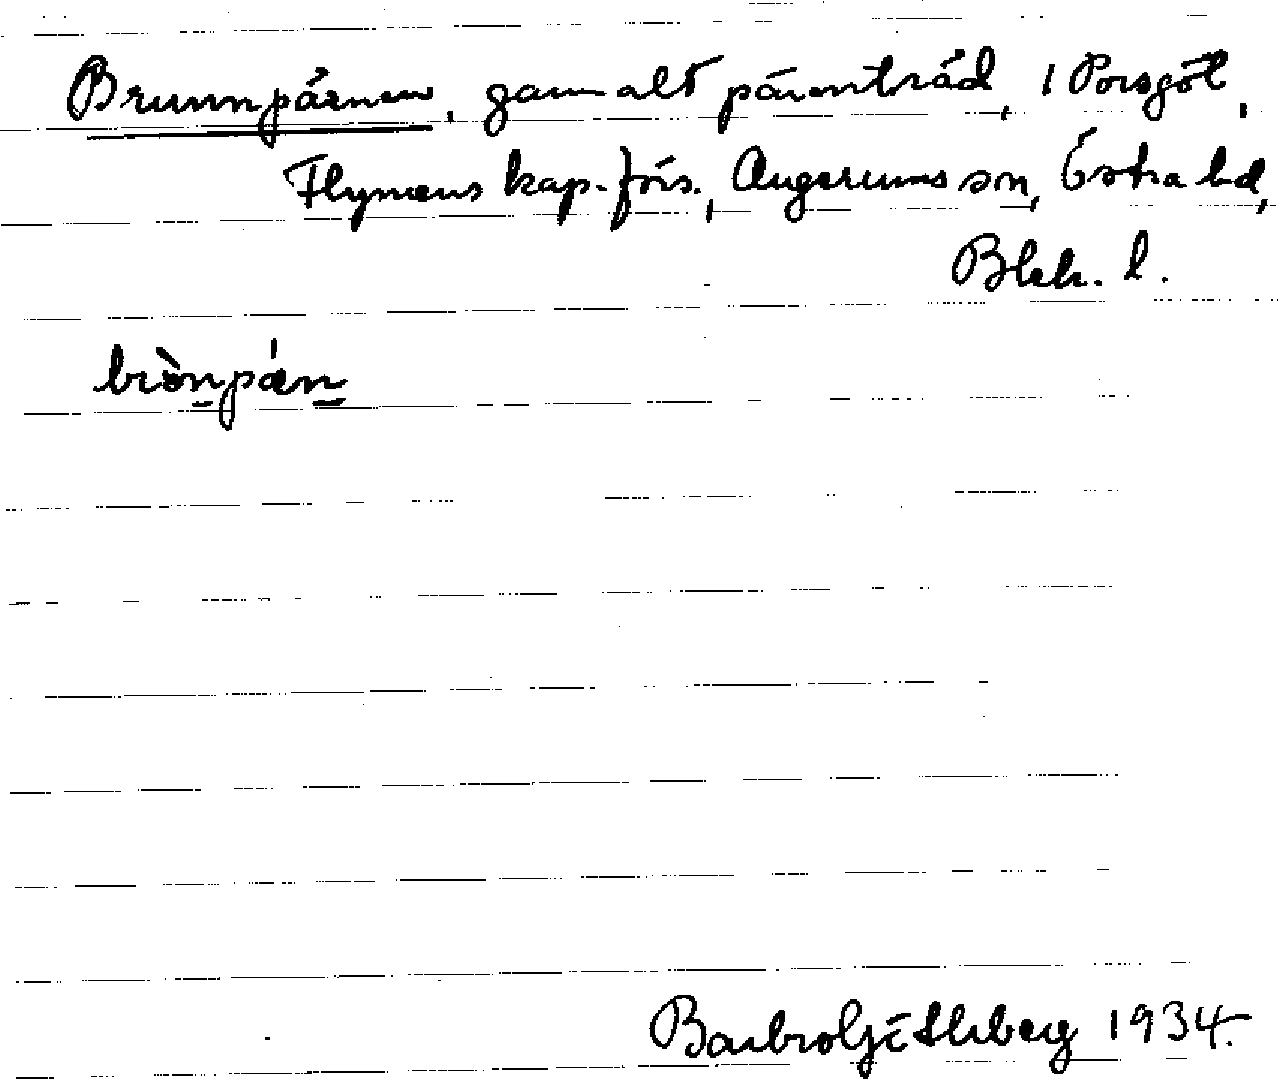 Brunnpären, gammalt päronträd, i Porsgöl,
Flymens kap.förs., Augerums sn, Östra hd,
Blek. l.
Barbro Götlberg 1934.